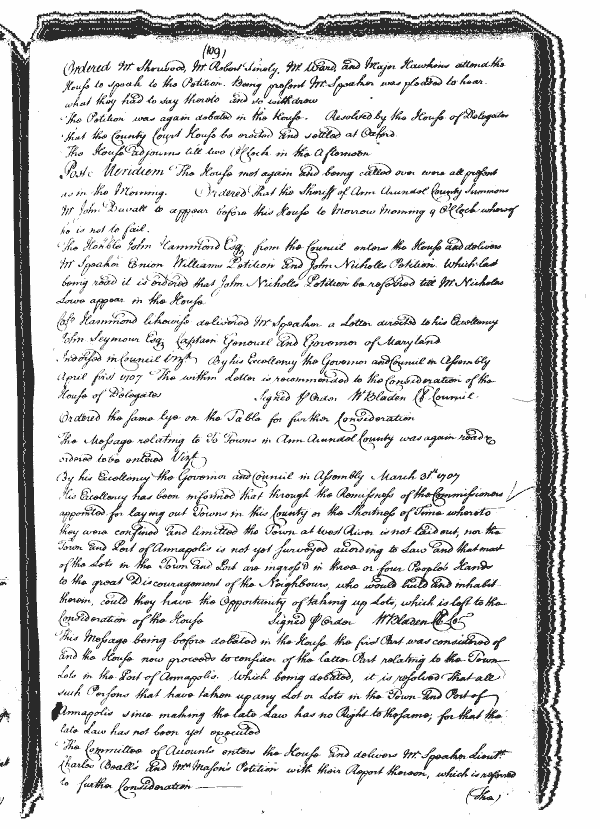 (109)
Ordered Mr Sherwood, Mr Robert Finely, Mr Ward, and Major Hawkins attend the
House to speak to the Petition. Being present Mr Speaker was pleased to hear
what they had to say thereto and so withdrew
The Petition was again debated in the House. Resolved by the House of Delegates
that the County Court House be erected and settled at Oxford
The House adjourns till two O'Clock in the Afternoon
Post Meridiem The House met again and being called over were all present
as in the Morning. Ordered that the Sheriff of Ann Arundel County Summons
Mr John Duvall to appear before this House to Morrow Morning 9 O'Clock whereof
he is not to fail.
The Honble John Hammond Esq from the Council enters the House and delivers
Mr Speaker Ennion Williams Petition and John Nicholls Petition. Which last
being read it is ordered that John Nicholls Petition be referred till Mr Nicholas
Lowe appear in the House
Colo Hammond likewise delivered Mr Speaker a Letter directed to his Excellency
John Seymour Esq Captain General and Governor of Maryland
Indorsed in Council Vizt By his Excellency the Governor and Council in Assembly
April first 1707 The within Letter is recommended to the Consideration of the
House of Delegates Signed p Order W Bladen Cl Council.
Ordered the same lye on the Table for further Consideration
The Message relating to Towns in Ann Arundel County was again read &
ordered to be entered Vizt
By his Excellency the Governor and Council in Assembly March 31st 1707
His Excellency has been informed that through the Remissness of the Commissioners
appointed for laying out Towns in this County or the Shortness of Time whereto
they were confined and limitted the Town at West River is not laid out, nor the
Town and Port of Annapolis is not yet surveyed according to Law and that most
of the Lots in the Town and Port are ingross'd in three or four People's Hands
to the great Discouragement of the Neighbours, who would build and inhabit
therein, could they have the Opportunity of taking up Lots, which is left to the
Consideration of the House Signed p Order W Bladen Cl Co
This Message being before debated in the House the first Part was considered of
and the House now proceeds to consider of the latter Part relating to the Town
Lots in the Port of Annapolis. Which being debated, it is resolved that all
such Persons that have taken up any Lot or Lots in the Town and Port of
Annapolis since making the late Law has no Right to the same, for that the
late Law has not been yet executed
The Committee of Accounts enters the House and delivers Mr Speaker Lieutt
Charles Beall's and Mrs Mason's Petition with their Report thereon, which is referred
to further Consideration
(The)